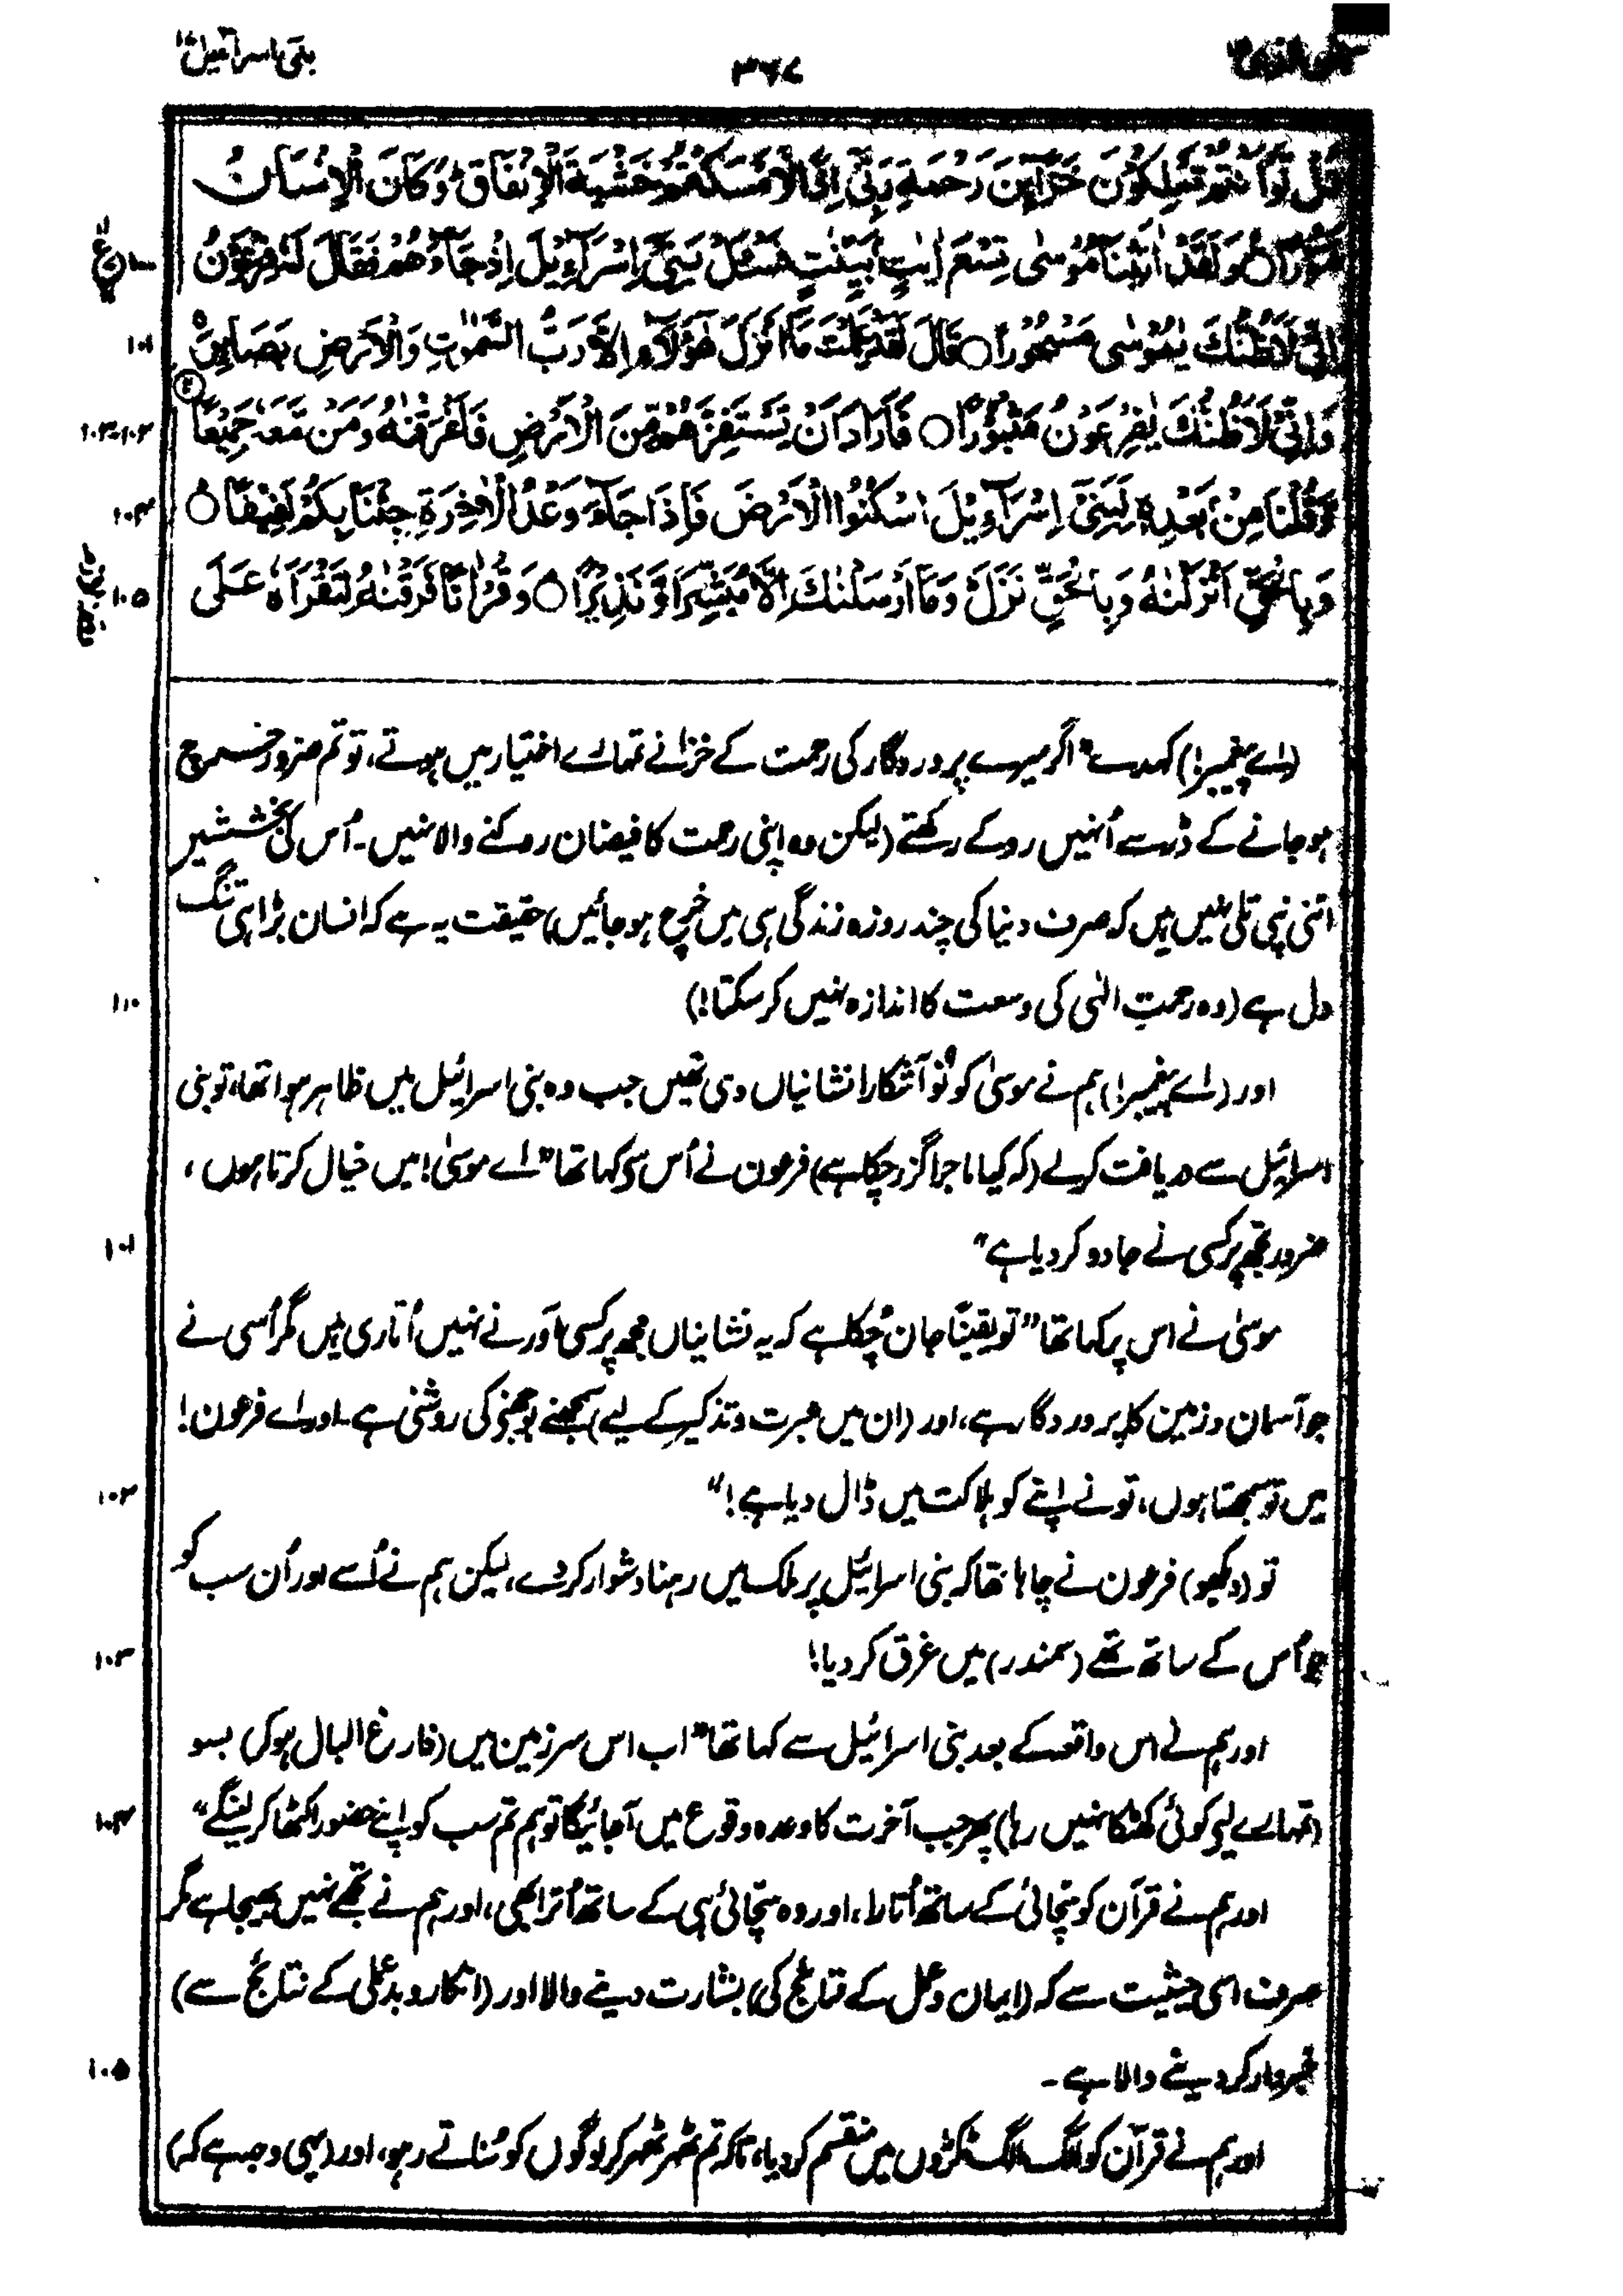 بنی اسرائیل ۱۷
۳۶۷
قُلْ لَّوْ اَنْتُمْ تَمْلِكُوْنَ خَزَآئِنَ رَحْمَةِ رَبِّیْۤ اِذًا لَّاَمْسَكْتُمْ خَشْیَةَ الْاِنْفَاقِ ؕ وَكَانَ الْاِنْسَانُ
قَتُوْرًا ۝ وَلَقَدْ اٰتَیْنَا مُوْسٰی تِسْعَ اٰیٰتٍۭ بَیِّنٰتٍ فَسْـَٔلْ بَنِیْۤ اِسْرَآءِیْلَ اِذْ جَآءَهُمْ فَقَالَ لَهٗ فِرْعَوْنُ
۱۰۰
اِنِّیْ لَاَظُنُّكَ یٰمُوْسٰی مَسْحُوْرًا ۝ قَالَ لَقَدْ عَلِمْتَ مَاۤ اَنْزَلَ هٰۤؤُلَآءِ اِلَّا رَبُّ السَّمٰوٰتِ وَالْاَرْضِ بَصَآئِرَ ۚ
۱۰۱
وَاِنِّیْ لَاَظُنُّكَ یٰفِرْعَوْنُ مَثْبُوْرًا ۝ فَاَرَادَ اَنْ یَّسْتَفِزَّهُمْ مِّنَ الْاَرْضِ فَاَغْرَقْنٰهُ وَمَنْ مَّعَهٗ جَمِیْعًا
۱۰۲-۱۰۳
وَّقُلْنَا مِنْۢ بَعْدِهٖ لِبَنِیْۤ اِسْرَآءِیْلَ اسْكُنُوا الْاَرْضَ فَاِذَا جَآءَ وَعْدُ الْاٰخِرَةِ جِئْنَا بِكُمْ لَفِیْفًا ۝
۱۰۴
وَبِالْحَقِّ اَنْزَلْنٰهُ وَبِالْحَقِّ نَزَلَ ؕ وَمَاۤ اَرْسَلْنٰكَ اِلَّا مُبَشِّرًا وَّنَذِیْرًا ۝ وَقُرْاٰنًا فَرَقْنٰهُ لِتَقْرَاَهٗ عَلَی
۱۰۵
(اے پیغمبر!) کہدے "اگر میرے پروردگار کی رحمت کے خزانے تمہارے اختیار میں ہوتے، تو تم ضرور خرچ
ہو جانے کے ڈر سے اُنہیں روکے رکھتے (لیکن وہ اپنی رحمت کا فیضان روکنے والا نہیں۔ اُس کی بخششیں
اتنی نپی تلی نہیں ہیں کہ صرف دنیا کی چند روزہ زندگی ہی میں خرچ ہو جائیں) حقیقت یہ ہے کہ انسان بڑا ہی تنگ
دل ہے (وہ رحمتِ الٰہی کی وسعت کا اندازہ نہیں کر سکتا!)
۱۱۰
اور (اے پیغمبر!) ہم نے موسیٰ کو نَو آشکارا نشانیاں دی تھیں جب وہ بنی اسرائیل میں ظاہر ہوا تھا، تو بنی
اسرائیل سے دریافت کر لے (کہ کیا ماجرا گزر چکا ہے) فرعون نے اُس سے کہا تھا "اے موسیٰ! میں خیال کرتا ہوں،
ضرور تجھ پر کسی نے جادو کر دیا ہے"
۱۰۱
موسیٰ نے اس پر کہا تھا "تو یقیناً جان چُکا ہے کہ یہ نشانیاں مجھ پر کسی اَور نے نہیں اُتاری ہیں مگر اُسی نے
جو آسمان و زمین کا پروردگار ہے، اور (ان میں عبرت و تذکیر کے لیے) سمجھنے بوجھنے کی روشنی ہے۔ اور اے فرعون!
میں تو سمجھتا ہوں، تو نے اپنے کو ہلاکت میں ڈال دیا ہے!"
۱۰۲
تو (دیکھو) فرعون نے چاہا تھا کہ بنی اسرائیل پر ملک میں رہنا دشوار کر دے، لیکن ہم نے اُسے اور اُن سب کو
جو اُس کے ساتھ تھے (سمندر) میں غرق کر دیا!
۱۰۳
اور ہم نے اس واقعہ کے بعد بنی اسرائیل سے کہا تھا "اب اس سرزمین میں (فارغ البال ہو کر) بسو
(تمہارے لیے کوئی کھٹکا نہیں رہا) پھر جب آخرت کا وعدہ وقوع میں آجائیگا تو ہم تم سب کو اپنے حضور اکٹھا کر لینگے"
۱۰۴
اور ہم نے قرآن کو سچائی کے ساتھ اُتارا، اور وہ سچائی ہی کے ساتھ اُترا بھی، اور ہم نے تجھے نہیں بھیجا ہے مگر
صرف اسی حیثیت سے کہ (ایمان و عمل کے نتائج کی) بشارت دینے والا اور (انکار و بدعملی کے نتائج سے)
خبردار کر دینے والا ہے۔
۱۰۵
اور ہم نے قرآن کو الگ الگ ٹکڑوں میں منقسم کر دیا، تاکہ تم ٹھہر ٹھہر کر لوگوں کو سُناتے رہو، اور (یہی وجہ ہے کہ)